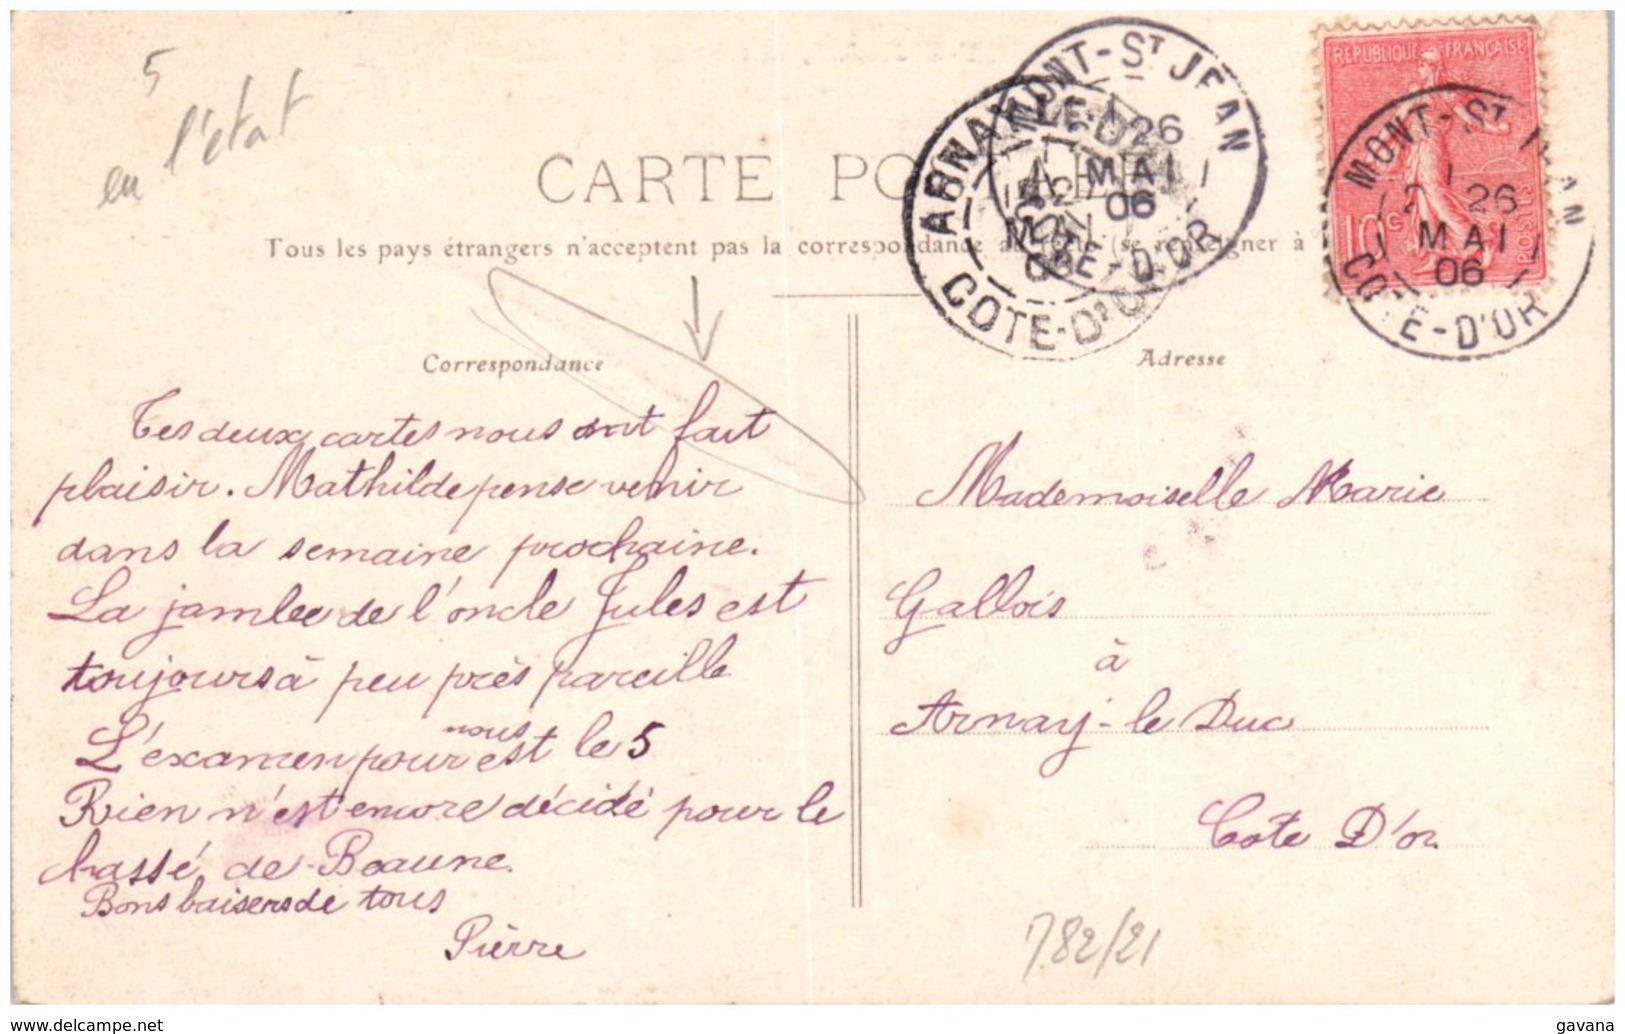 5
en l'état
CARTE PO
Tous les pays étrangers n'acceptent pas la correspondance au (se renseigner à
Correspondance
Tes deux cartes nous ont fait
plaisir. Mathilde pense venir
dans la semaine prochaine.
La jambe de l'oncle Jules est
toujours à peu près pareille
L'examen pour nous est le 5
Rien n'est encore décidé pour le
de Beaune.
Bons baisers de tous
Pierre
ARNAY-LE-D
12
MAI
06
COTE-D'O
MONT-ST JEAN
26
MAI
06
COTE-D'OR
REPUBLIQUE FRANÇAISE
10c
POSTES
MONT-ST JEAN
26
MAI
06
COTE-D'OR
Adresse
Mademoiselle Marie
Gallois
à
Arnay-le Duc
Cote D'or
782/21
www.delcampe.net
gavana